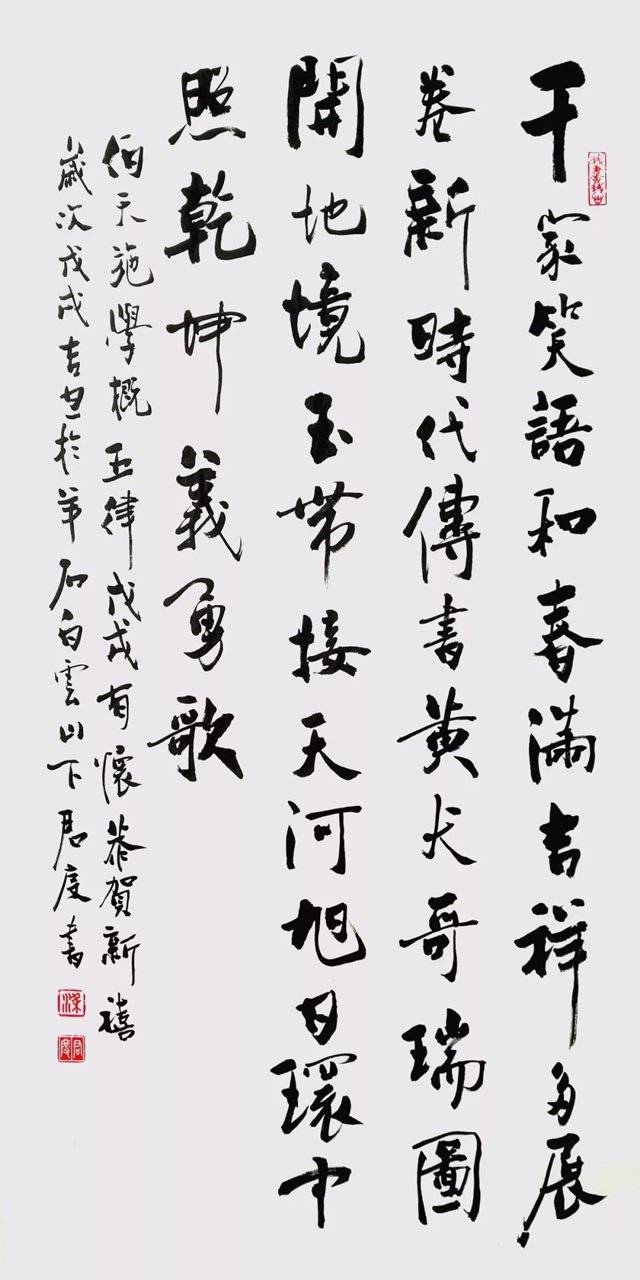 千家笑語和春滿吉祥多展
卷新時代傳書黃犬哥瑞圖
開地境玉帶接天河旭日環中
照乾坤義勇歌
伯天施學概五律戊戌有懷恭賀新禧
歲次戊戌吉旦於羊石白雲山下君度書
梁
君度